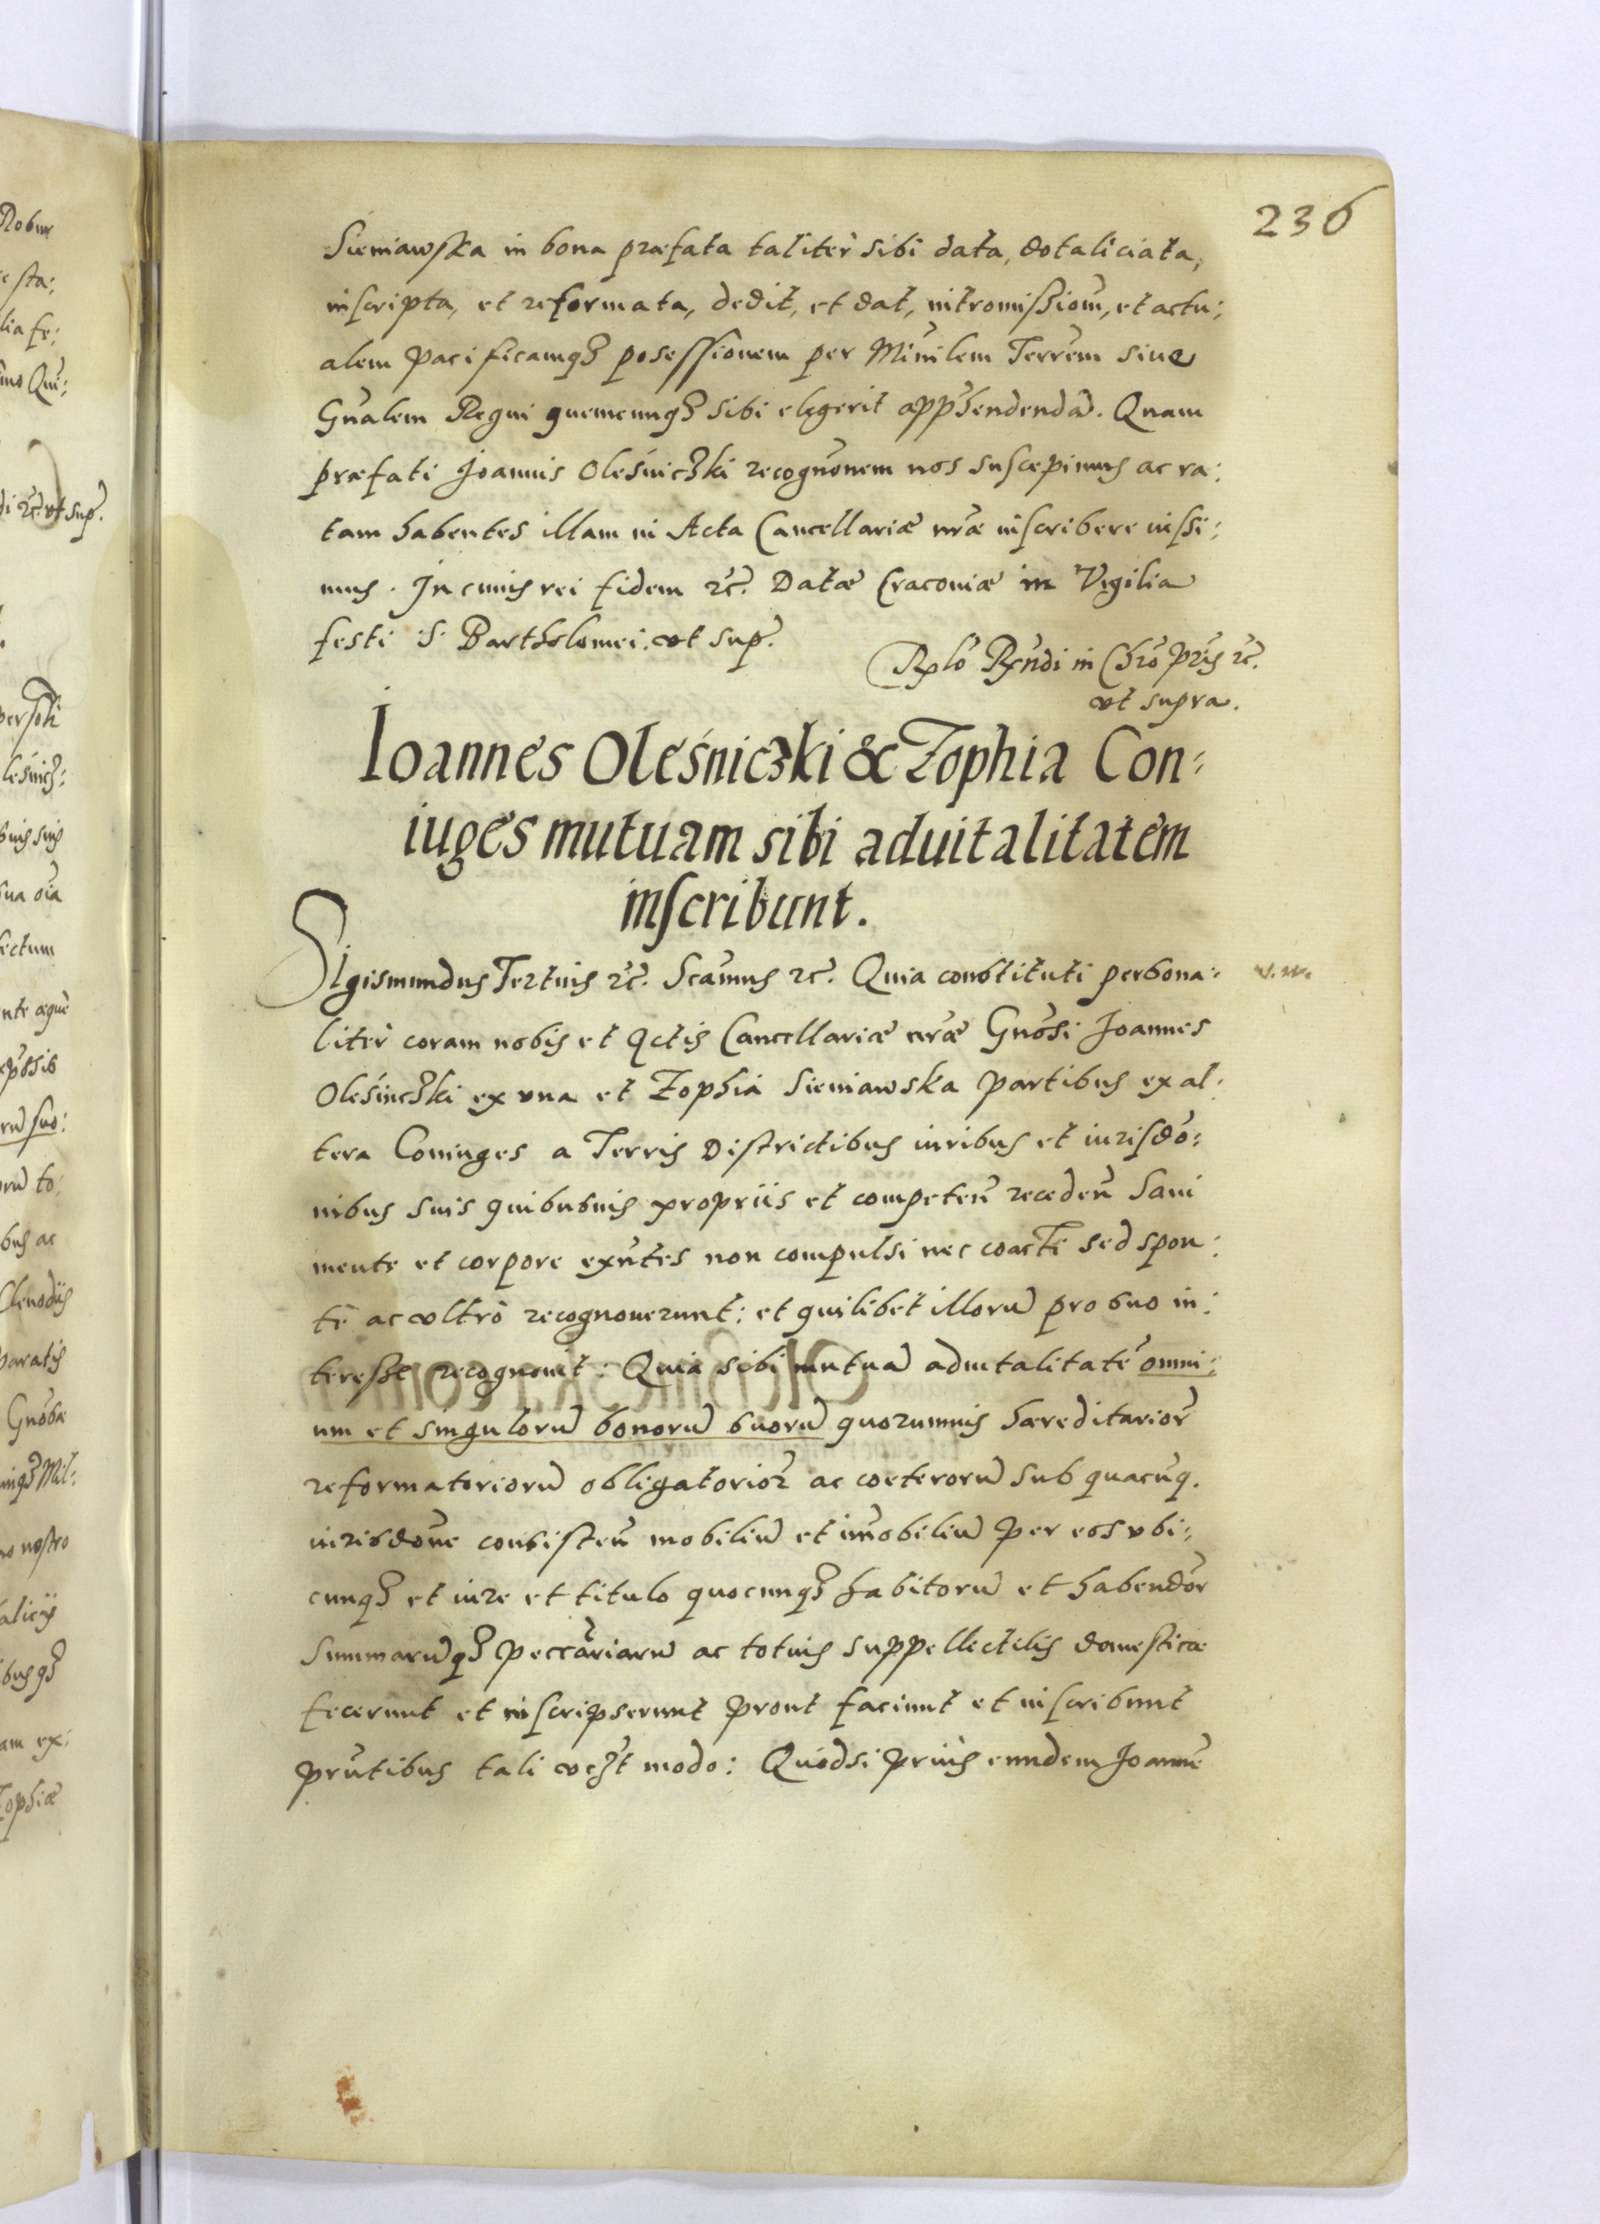 236
Sieniawska in bona præfata talitèr sibi data, dotaliciata,
inscripta, et reformata, dedit, et dat, intromissiom̃, et actu:
alem pacificamq₃ posessionem per Mĩnilem Terrẽm siue
Gñalem Regni quemcunq₃ sibi elegerit app̃hendendã. Quam
præfati Joannis Oleśniczki recognõnem nos suscepimus ac ra:
tam habentes illam in Acta Cancellariæ nr̃æ inscribere iussi:
mus. In cuius rei fidem &c̃. Datæ Cracouiæ in Vigilia
festi S. Bartholomei. vt sup̃.
Rl̃o Rx̃ndi in Chr̃o Pr̃is &c̃.
vt supra.
Ioannes Oleśniczki & Zophia Con:
iuges mutuam sibi aduitalitatem
inscribunt.
Sigismundus Tertius &c̃. Scãmus &c̃. Quia constituti persona:
litèr coram nobis et Actis Cancellariæ nr̃æ Gñosi Joannes
Oleśniczki ex vna et Zophia Sieniawska partibus ex al:
tera Coniuges a Terris Districtibus iuribus et iurisdõ:
nibus suis quibusuis propriis et competeñ recedeñ Sani
mente et corpore exñtes non compulsi nec coacti sed spon:
tè ac vltrò recognouerunt: et quilibet illorũ pro suo in:
teresse recognouit: Quia sibi mutuã aduitalitatẽ omni:
um et singulorũ bonorũ suorũ quorumuis hæreditarior̃
reformatoriorũ obligatorior̃ ac cæterorũ sub quacũq.
iurisdõne consisteñ mobiliũ et im̃obiliũ per eos vbi:
cunq₃ et iure et titulo quocunq₃ habitorũ et habendõr
Summarũq₃ peccãriarũ ac totius suppellectilis domesticæ
fecerunt et inscripserunt prout faciunt et inscribunt
pr̃ntibus tali vc₃t modo: Quòdsi priùs eundem Joannẽ